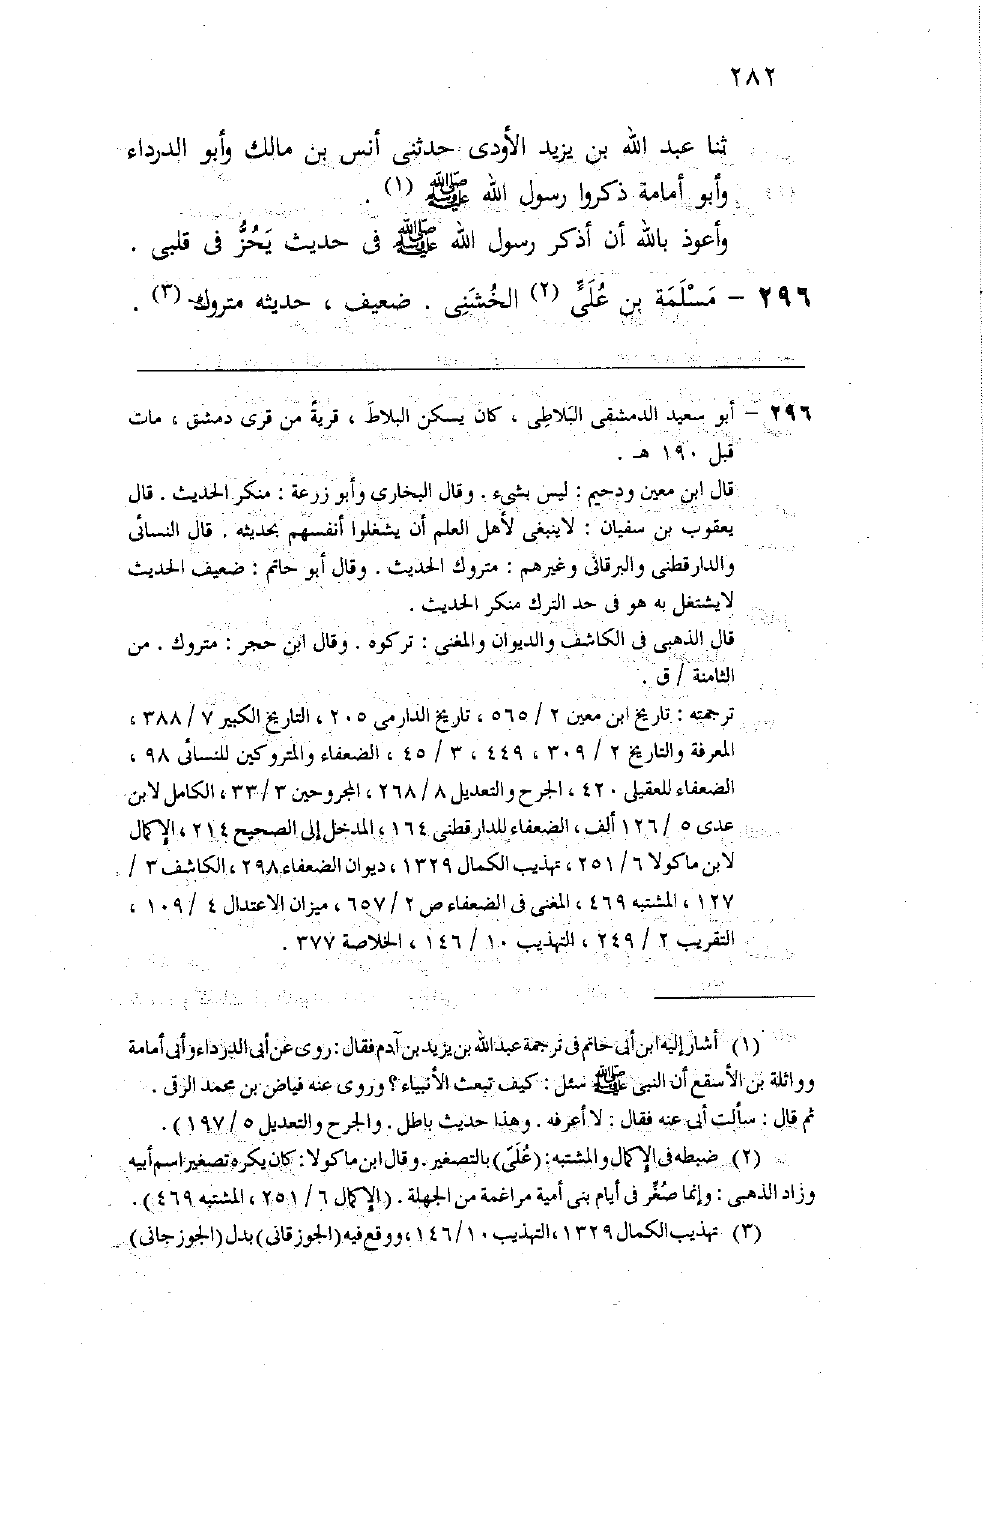 ٢٨٢
ثنا عبد الله بن يزيد الأودى حدثنى أنس بن مالك وأبو الدرداء
وأبو أمامة ذكروا رسول الله ﷺ (١) .
وأعوذ بالله أن أذكر رسول الله ﷺ فى حديث يَحُزُّ فى قلبى .
٢٩٦ – مَسْلَمَة بن عُلَىٍّ (٢) الخُشَنِى . ضعيف ، حديثه متروك (٣) .
٢٩٦ – أبو سعيد الدمشقى البَلاطِى ، كان يسكن البلاطَ ، قريةً من قرى دمشق ، مات
قبل ١٩٠ هـ .
قال ابن معين ودحيم : ليس بشىء . وقال البخاري وأبو زرعة : منكر الحديث . قال
يعقوب بن سفيان : لاينبغى لأهل العلم أن يشغلوا أنفسهم بحديثه . قال النسائى
والدارقطنى والبرقانى وغيرهم : متروك الحديث . وقال أبو حاتم : ضعيف الحديث
لايشتغل به هو فى حد الترك منكر الحديث .
قال الذهبى فى الكاشف والديوان والمغنى : تركوه . وقال ابن حجر : متروك . من
الثامنة / ق .
ترجمته : تاريخ ابن معين ٢ / ٥٦٥ ، تاريخ الدارمى ٢٠٥ ، التاريخ الكبير ٧ / ٣٨٨ ،
المعرفة والتاريخ ٢ / ٣٠٩ ، ٤٤٩ ، ٣ / ٤٥ ، الضعفاء والمتروكين للنسائى ٩٨ ،
الضعفاء للعقيلى ٤٢٠ ، الجرح والتعديل ٨ / ٢٦٨ ، المجروحين ٣ / ٣٣ ، الكامل لابن
عدى ٥ / ١٢٦ ألف ، الضعفاء للدارقطنى ١٦٤ ، المدخل إلى الصحيح ٢١٤ ، الإكمال
لابن ماكولا ٦ / ٢٥١ ، تهذيب الكمال ١٣٢٩ ، ديوان الضعفاء ٢٩٨ ، الكاشف ٣ /
١٢٧ ، المشتبه ٤٦٩ ، المغنى فى الضعفاء ص ٢ / ٦٥٧ ، ميزان الاعتدال ٤ / ١٠٩ ،
التقريب ٢ / ٢٤٩ ، التهذيب ١٠ / ١٤٦ ، الخلاصة ٣٧٧ .
(١) أشار إليه ابن أبى حاتم فى ترجمة عبدالله بن يزيد بن آدم فقال : روى عن أبى الدرداء وأبى أمامة
وواثلة بن الأسقع أن النبى ﷺ سئل : كيف تبعث الأنبياء ؟ وروى عنه فياض بن محمد الرقى .
ثم قال : سألت أبى عنه فقال : لا أعرفه . وهذا حديث باطل . والجرح والتعديل ٥ / ١٩٧ ) .
(٢) ضبطه فى الإكمال والمشتبه : (عُلَىّ) بالتصغير . وقال ابن ماكولا : كان يكره تصغير اسم أبيه
وزاد الذهبى : وإنما صُغِّر فى أيام بنى أمية مراغمة من الجهلة . (الإكمال ٦ / ٢٥١ ، المشتبه ٤٦٩ ) .
(٣) تهذيب الكمال ١٣٢٩ ، التهذيب ١٠ / ١٤٦ ، ووقع فيه (الجوزقانى) بدل (الجوزجانى)